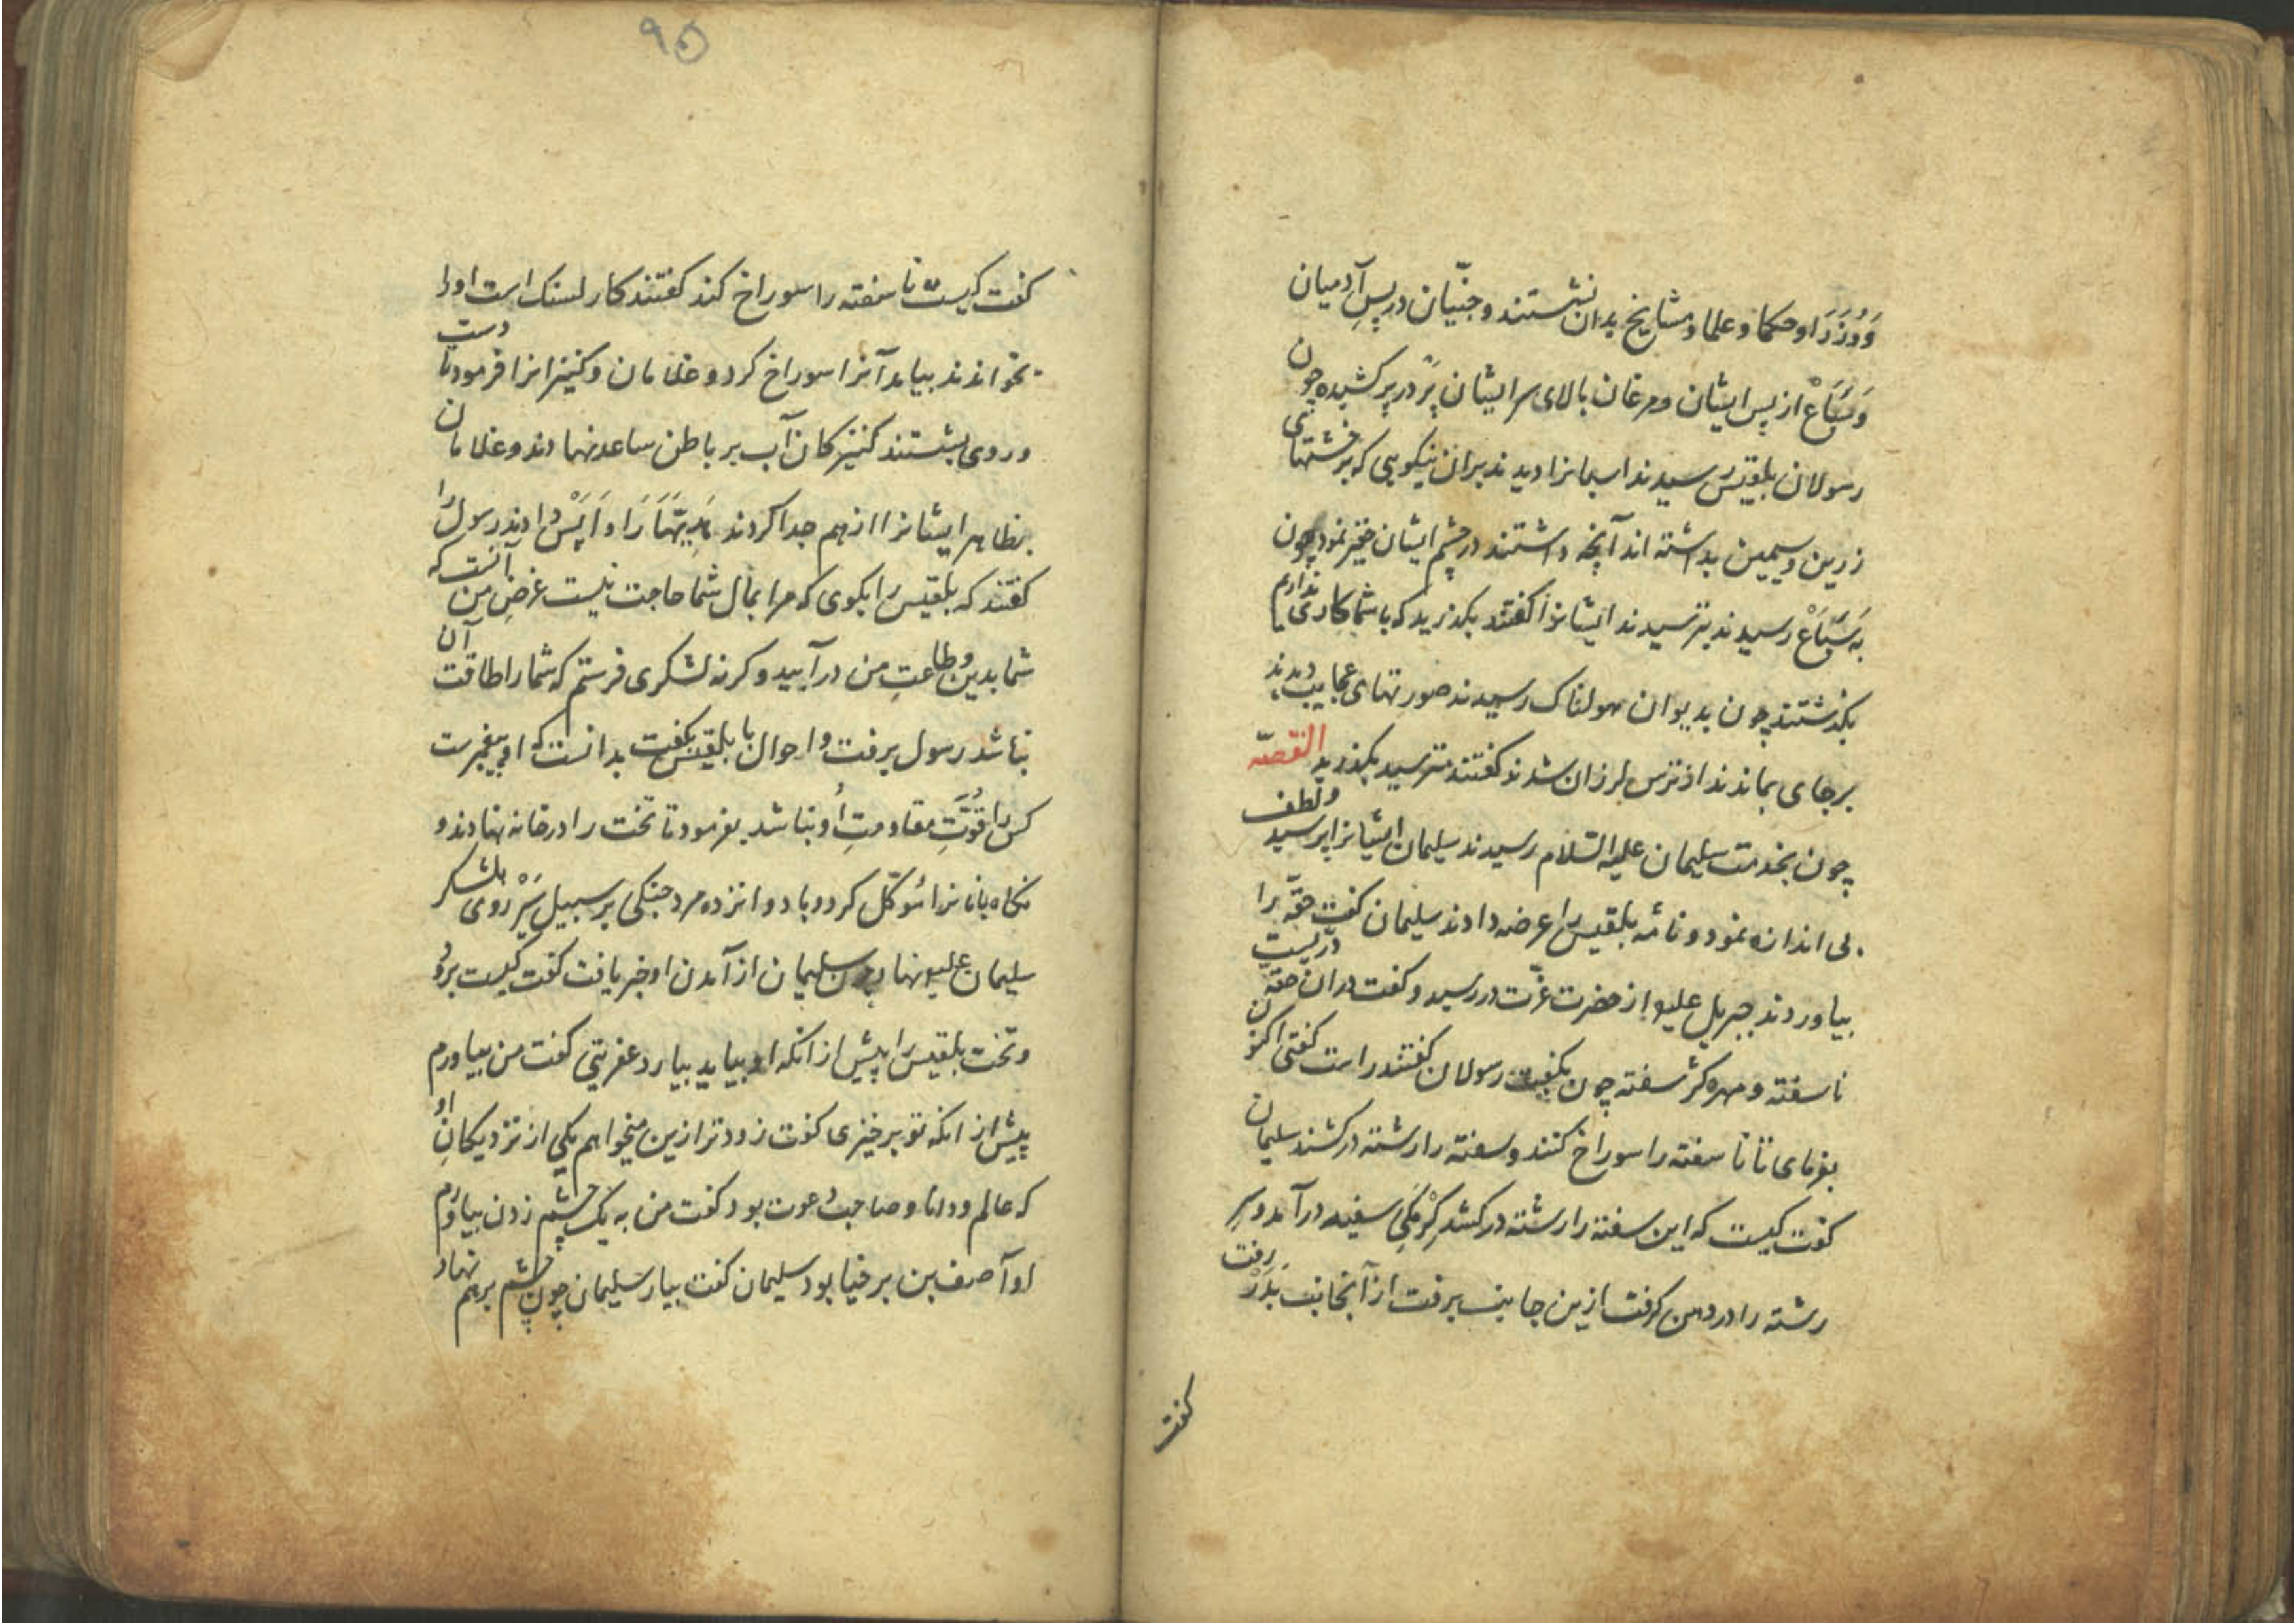 وَوُزَرَا و حکما و علما و مشایخ بدان نشستند و جنّیان در پسِ آدمیان
وَ سَبَاعْ از پس ایشان و مرغان بالای سر ایشان پَرْ در پر کشیده چون
رسولان بلقیس رسیدند اسبانرا دیدند بران نیکویی که بر خشتهای
زرین و سیمین بداشته اند آنچه داشتند در چشم ایشان حقیر نمود چون
به سَبَاعْ رسیدند بترسیدند ایشانرا گفتند بگذرید که با شما کاری نداریم
بگذشتند چون بدیوان هولناک رسیدند صورتهای عجایب دیدند
برجای بماندند از ترس لرزان شدند گفتند مترسید بگذرید القصّه
چون بخدمت سلیمان علیه السّلام رسیدند سلیمان ایشانرا پرسید و لطف
بی اندازه نمود و نامهٔ بلقیس را عرضه دادند سلیمان گفت حقّه را
بیاوردند جبریل علیه از حضرت عزّت در رسید و گفت دران حقّه دُرّیست
ناسفته و مهره کژ سفته چون بگفت رسولان گفتند راست گفتی اکنون
بفرمای تا ناسفته را سوراخ کنند و سفته را رشته در کشند سلیمان
گفت کیست که این سفته را رشته در کشد کِرْمَکی سفید در آمد و سرِ
رشته را در دهن گرفت ازین جانب برفت از آنجانب بَدَرْ رفت
گفت
۹۵
گفت کیست ناسفته را سوراخ کند گفتند کار لسنک است او را
بخواندند بیامد آنرا سوراخ کرد و غلامان و کنیزانرا فرمود تا دست
و روی بشستند کنیزکان آب بر باطن ساعد نهادند و غلامان
بظاهر ایشانرا از هم جدا کردند هَدِیّهَا رَا وَاپَسْ دادند رسول را
گفتند که بلقیس را بگوی که مرا بمال شما حاجت نیست غرضِ من آنست که
شما بدین و طاعتِ من در آیید و گرنه لشکری فرستم که شما را طاقت آن
نباشد رسول برفت و احوال با بلقیس بگفت بدانست که او پیغمبرست
کس را قُوّتِ مقاومتِ اُو نباشد بفرمود تا تخت را در خانه نهادند و
نگاه بانانرا مُوکّل کرد و با دوانزده مرد جنگی بر سبیل سَیْر روی بلشکر
سلیمان علیه نهاد چون سلیمان از آمدن او خبر یافت گفت کیست برود
و تخت بلقیس را پیش از انکه او بیاید بیارد عفریتی گفت من بیاورم
پیش از انکه تو برخیزی گفت زودتر ازین میخواهم یکی از نزدیکانِ او
که عالم و دانا و صاحب دعوت بود گفت من به یک چشم زدن بیاورم
او آصف بن برخیا بود سلیمان گفت بیار سلیمان چون چشم برهم نهاد